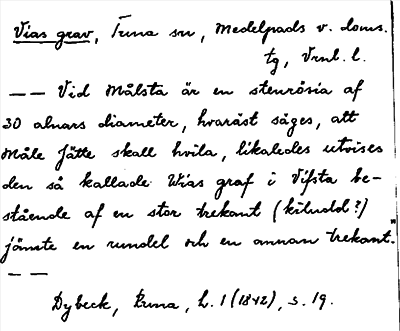 Vias grav, Tuna sn, Medelpads v. doms.
tg, Vrnl. l.
— — Vid Målsta är en stenrösia af
30 alnars diameter, hvaråst säges, att
Måle Jätte skall hvila, likaledes utvises
den så kallade Wias graf i Vifsta be-
stående af en stor trekant (kiludd?)
jämte en rundel och en annan trekant.
— —
Dybeck, Runa, h. 1 (1842), s. 19.